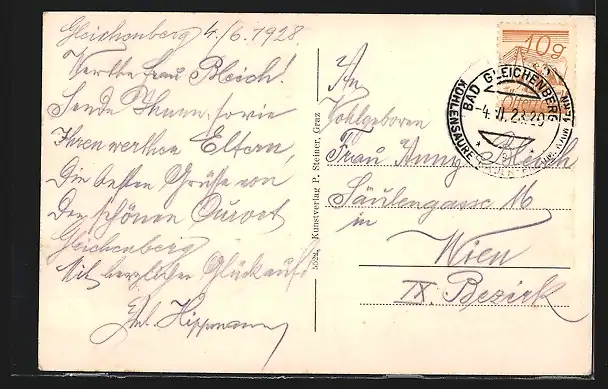 Gleichenberg 4./6. 1928.
Werthe Frau Bleich!
Sende Ihnen, sowie
Ihren werthen Eltern,
die besten Grüße von
den schönen Curort
Gleichenberg
Mit herzlichen Glückauf
Hippmann
5522 Kunstverlag P. Steiner, Graz
10g
BAD GLEICHENBERG
-4.VI.28.20
KOHLENSÄURE
An
Wohlgeboren
Frau Anny Bleich
Säulengasse 16
in
Wien
IX. Bezirk